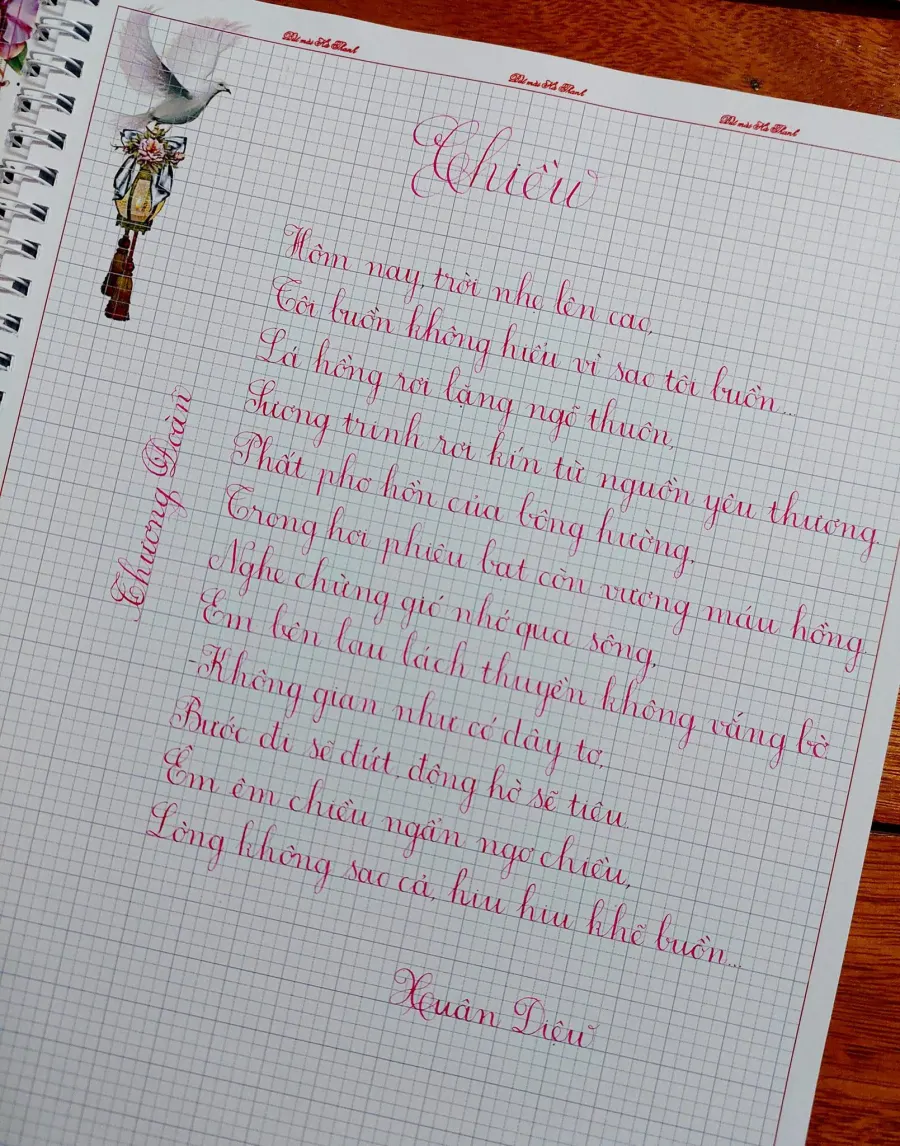 Bút mài Hà Thanh
Bút mài Hà Thanh
Bút mài Hà Thanh
Chiều
Hôm nay, trời nhẹ lên cao,
Tôi buồn không hiểu vì sao tôi buồn...
Lá hồng rơi lặng ngõ thuôn,
Sương trinh rơi kín từ nguồn yêu thương.
Phất phơ hồn của bông hường,
Trong hơi phiêu bạt còn vương máu hồng.
Nghe chừng gió nhớ qua sông,
Em bên lau lách thuyền không vắng bờ.
-Không gian như có dây tơ,
Bước đi sẽ đứt, động hờ sẽ tiêu.
Êm êm chiều ngẩn ngơ chiều,
Lòng không sao cả, hiu hiu khẽ buồn...
Xuân Diệu
Thương Đoàn